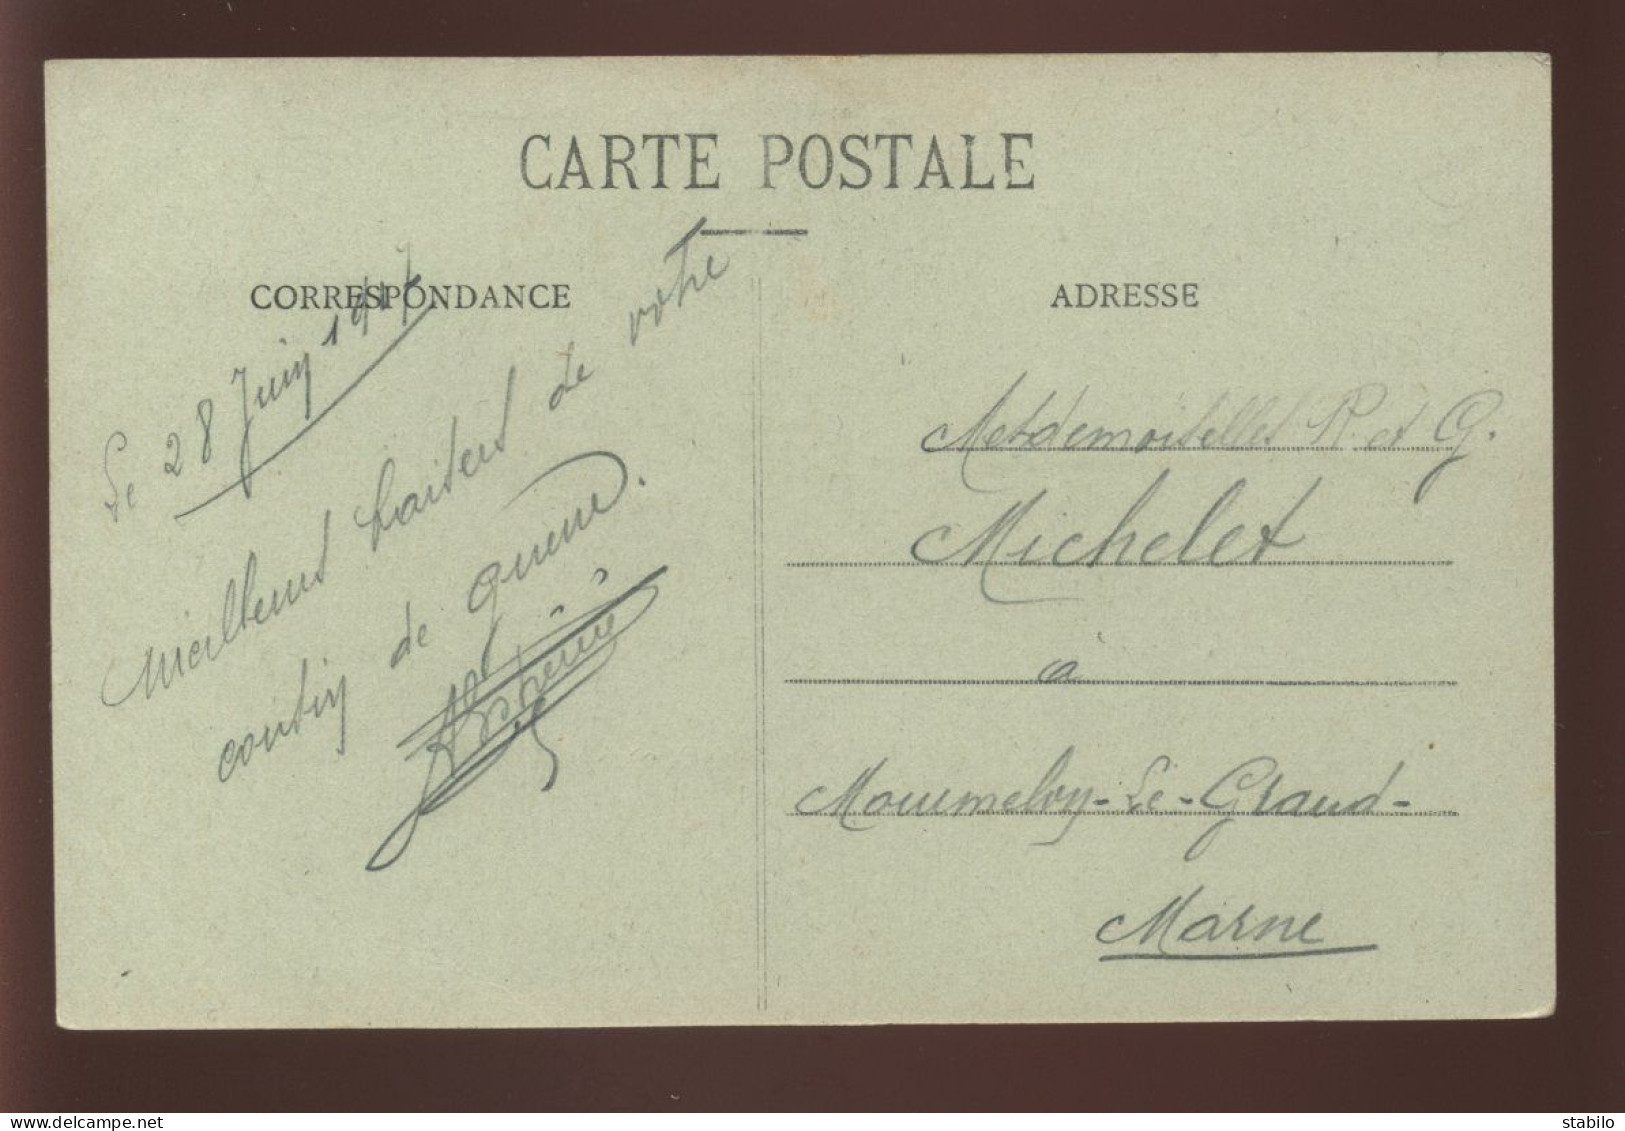 CARTE POSTALE
CORRESPONDANCE
ADRESSE
Le 28 Juin 1917
Meilleurs baisers de votre
cousin de
Mesdemoiselles R. et G.
Michelet
à
Mourmelon-Le-Grand-
Marne
stabilo
Delcampe.net